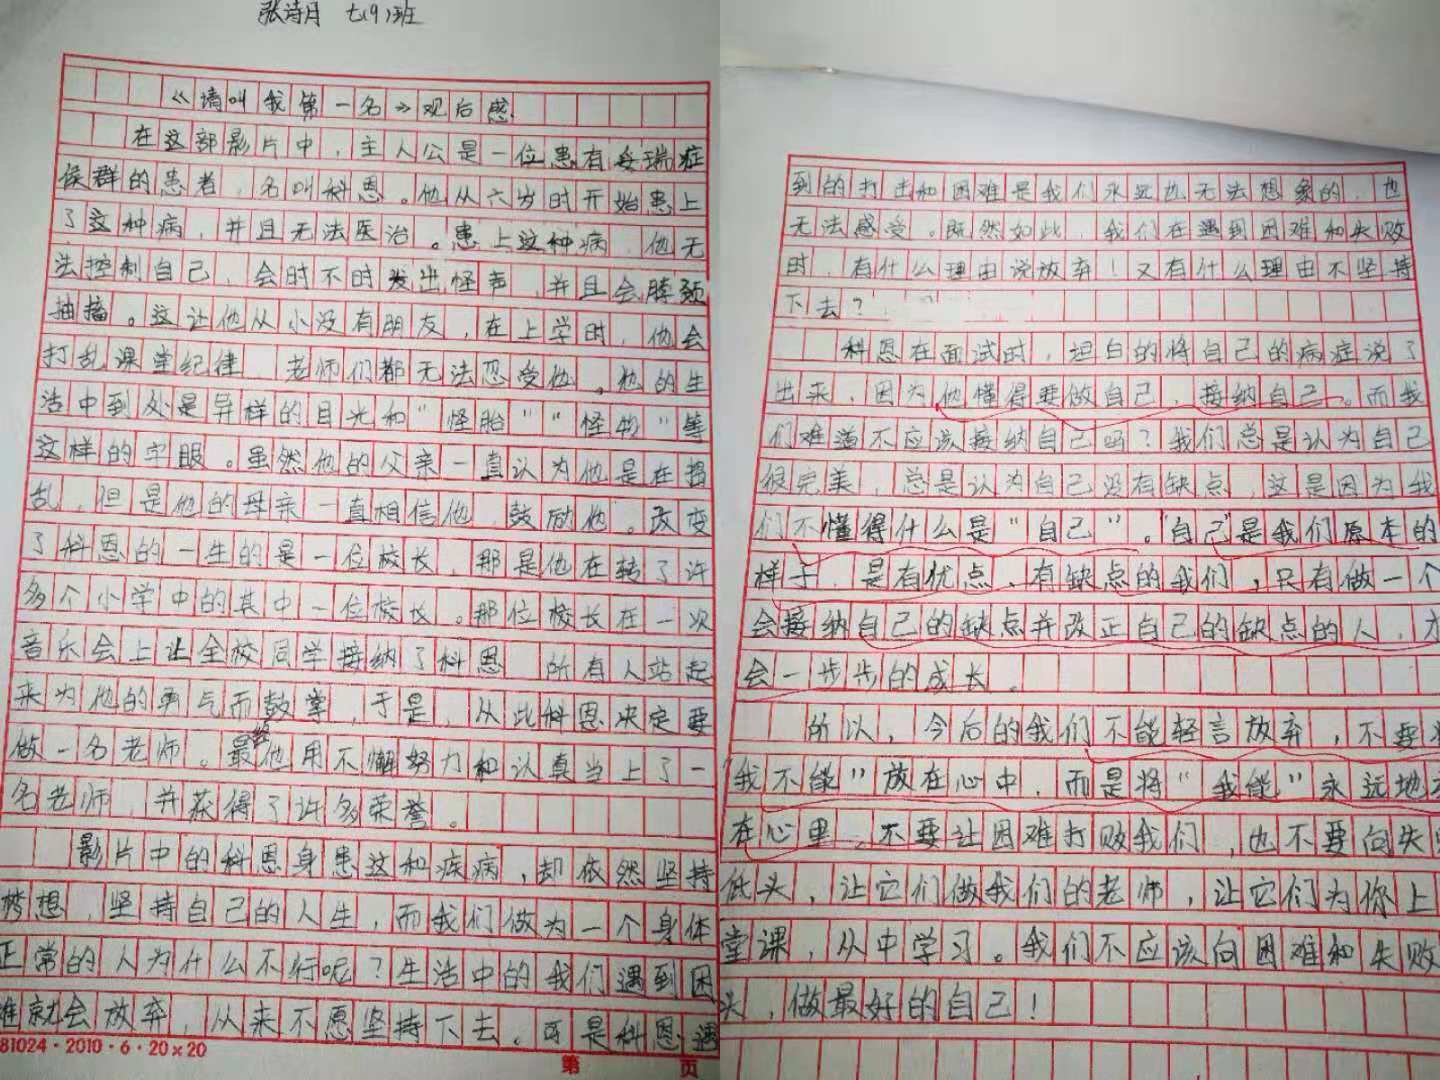 张诗月 七(9)班
《请叫我第一名》观后感
在这部影片中，主人公是一位患有妥瑞症
侯群的患者，名叫科恩。他从六岁时开始患上
了这种病，并且无法医治。患上这种病，他无
法控制自己，会时不时发出怪声，并且会脖颈
抽搐。这让他从小没有朋友，在上学时，他会
打乱课堂纪律，老师们都无法忍受他。他的生
活中到处是异样的目光和“怪胎”“怪物”等
这样的字眼。虽然他的父亲一直认为他是在捣
乱，但是他的母亲一直相信他，鼓励他。改变
了科恩的一生的是一位校长，那是他在转了许
多个小学中的其中一位校长。那位校长在一次
音乐会上让全校同学接纳了科恩，所有人站起
来为他的勇气而鼓掌，于是，从此科恩决定要
做一名老师。最终他用不懈努力和认真当上了一
名老师，并获得了许多荣誉。
影片中的科恩身患这种疾病，却依然坚持
梦想，坚持自己的人生，而我们做为一个身体
正常的人为什么不行呢？生活中的我们遇到困
难就会放弃，从来不愿坚持下去。可是科恩遇
81024·2010·6·20×20
第 页
到的打击和困难是我们永远也无法想象的，也
无法感受。既然如此，我们在遇到困难和失败
时，有什么理由说放弃！又有什么理由不坚持
下去？
科恩在面试时，坦白的将自己的病症说了
出来，因为他懂得要做自己，接纳自己。而我
们难道不应该接纳自己吗？我们总是认为自己
很完美，总是认为自己没有缺点，这是因为我
们不懂得什么是“自己”。“自己”是我们原本的
样子，是有优点、有缺点的我们，只有做一个
会接纳自己的缺点并改正自己的缺点的人，才
会一步步的成长。
所以，今后的我们不能轻言放弃，不要将
我不能”放在心中，而是将“我能”永远地
在心里。不要让困难打败我们，也不要向失败
低头，让它们做我们的老师，让它们为你上
堂课，从中学习。我们不应该向困难和失败
头，做最好的自己！